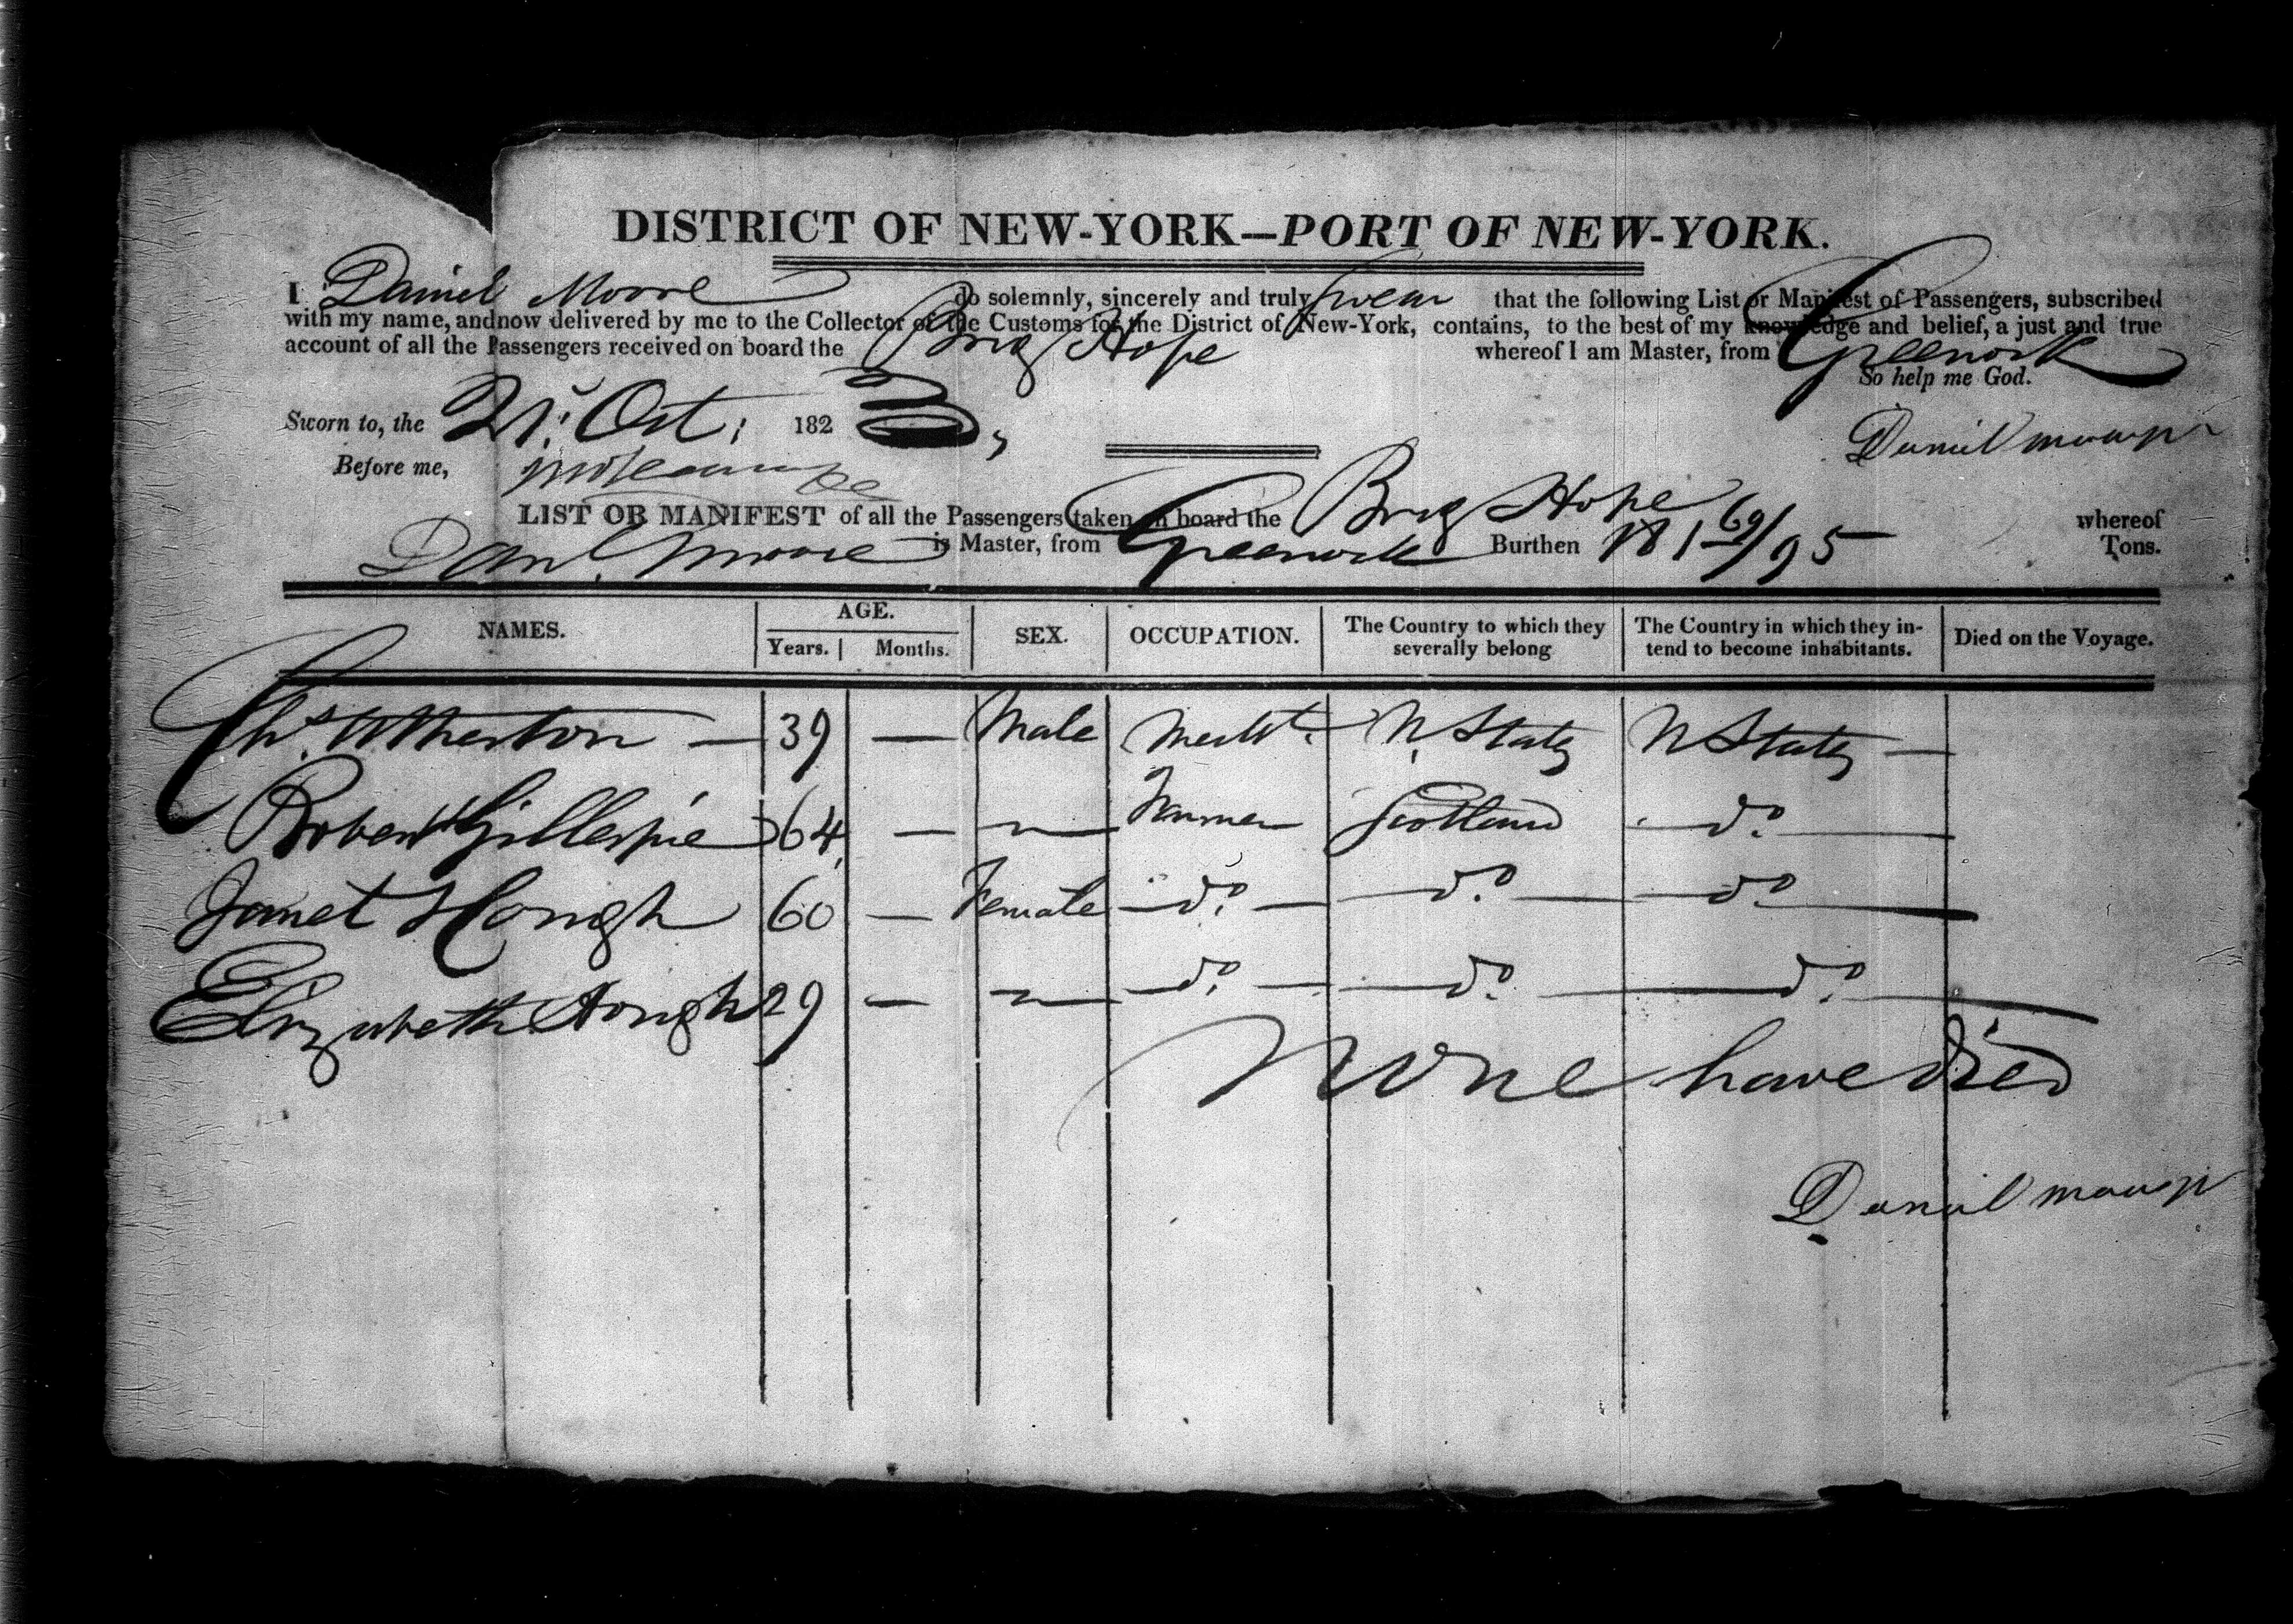 DISTRICT OF NEW-YORK—PORT OF NEW-YORK.
I Daniel Moore do solemnly, sincerely and truly swear that the following List or Manifest of Passengers, subscribed
with my name, and now delivered by me to the Collector of the Customs for the District of New-York, contains, to the best of my knowledge and belief, a just and true
account of all the Passengers received on board the Brig Hope whereof I am Master, from Greenock
So help me God.
Sworn to, the 21st Oct: 182
Daniel
Before me,
LIST OR MANIFEST of all the Passengers taken on board the Brig Hope whereof
Danl. Moore is Master, from Greenock Burthen 181 69/95 Tons.
NAMES. AGE. SEX. OCCUPATION. The Country to which they severally belong The Country in which they intend to become inhabitants. Died on the Voyage.
Years. Months.
Chs. Atherton — 39 — Male Mercht. U States U States —
Robert Gillespie 64 — " Farmer Scotland do
Janet Hough 60 — Female do do do
Elizabeth Hough 29 — " do do do
None have died
Daniel